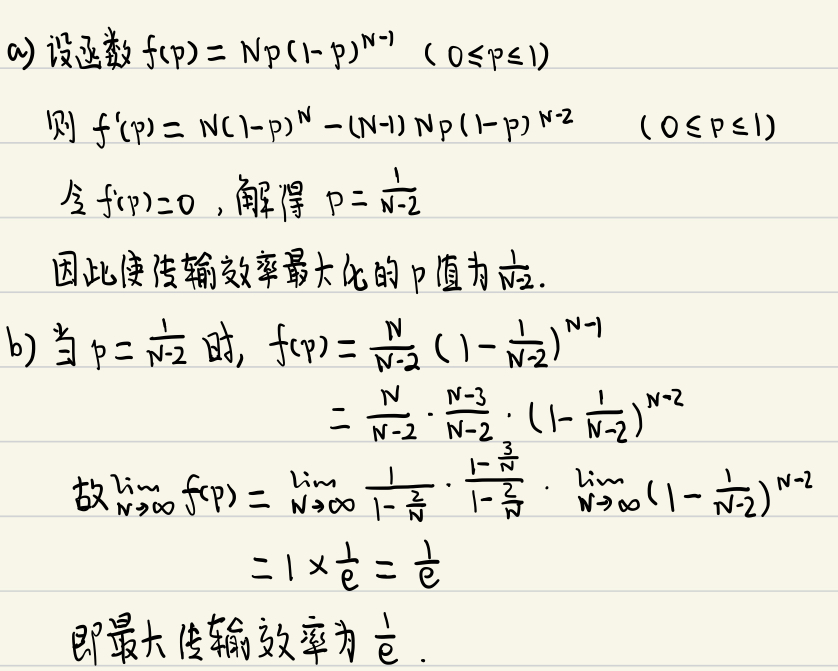 a) 设函数 f(p) = Np(1-p)^{N-1} (0≤p≤1)
则 f'(p) = N(1-p)^N - (N-1)Np(1-p)^{N-2} (0≤p≤1)
令 f'(p)=0 , 解得 p = \frac{1}{N-2}
因此使传输效率最大化的 p 值为 \frac{1}{N-2}.
b) 当 p = \frac{1}{N-2} 时, f(p) = \frac{N}{N-2} (1 - \frac{1}{N-2})^{N-1}
= \frac{N}{N-2} · \frac{N-3}{N-2} · (1 - \frac{1}{N-2})^{N-2}
故 \lim_{N→∞} f(p) = \lim_{N→∞} \frac{1}{1-\frac{2}{N}} · \frac{1-\frac{3}{N}}{1-\frac{2}{N}} · \lim_{N→∞} (1 - \frac{1}{N-2})^{N-2}
= 1 × \frac{1}{e} = \frac{1}{e}
即最大传输效率为 \frac{1}{e} .